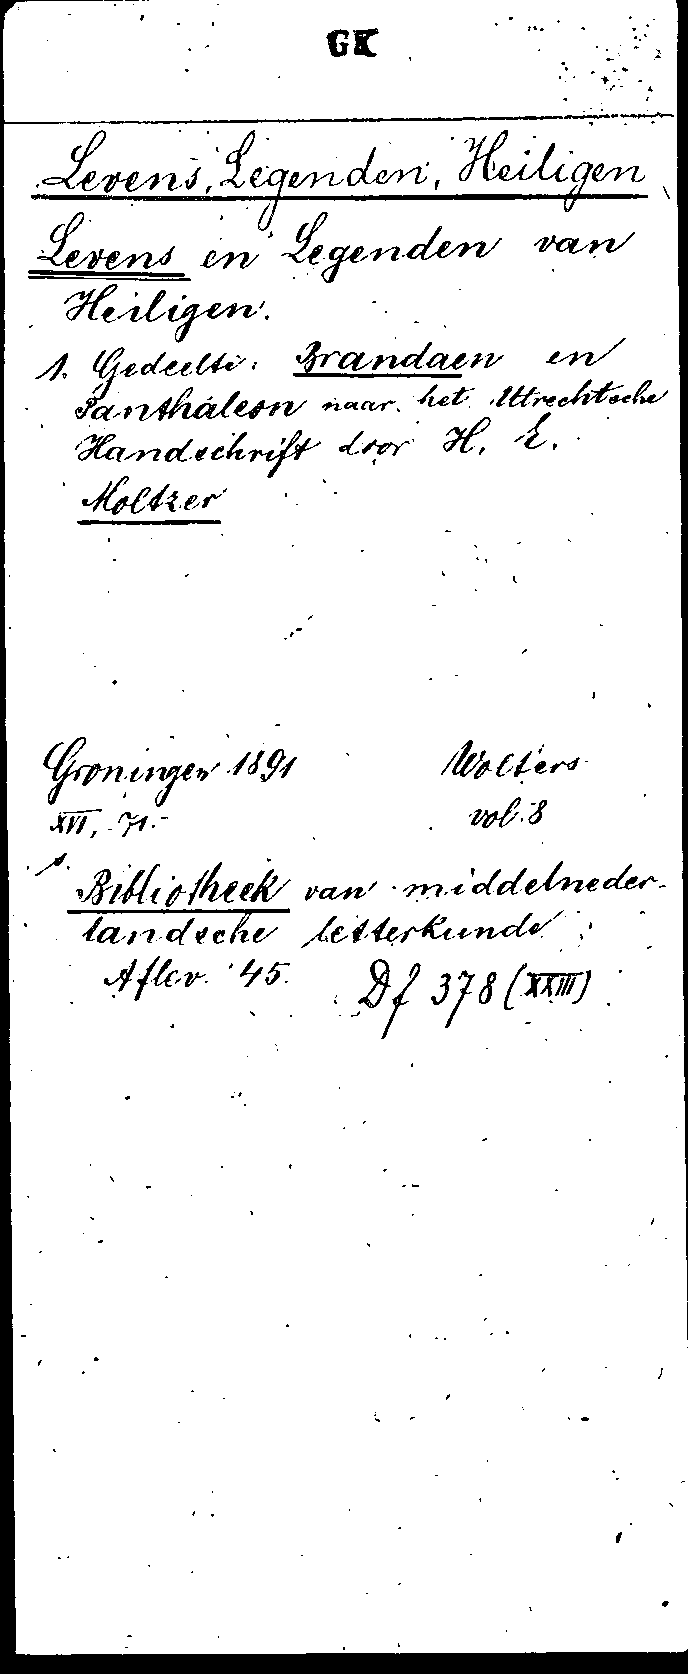 GK
Levens, Legenden, Heiligen
Levens en Legenden van
Heiligen.
1. Gedeelte: Brandaen en
Panthaleon naar het Utrechtsche
Handschrift door H. E.
Moltzer
Groningen 1891 Wolters
XVI, 71.- vol. 8
Bibliotheek van middelneder-
landsche letterkunde
Aflev. 45. Df 378 (XXIII)